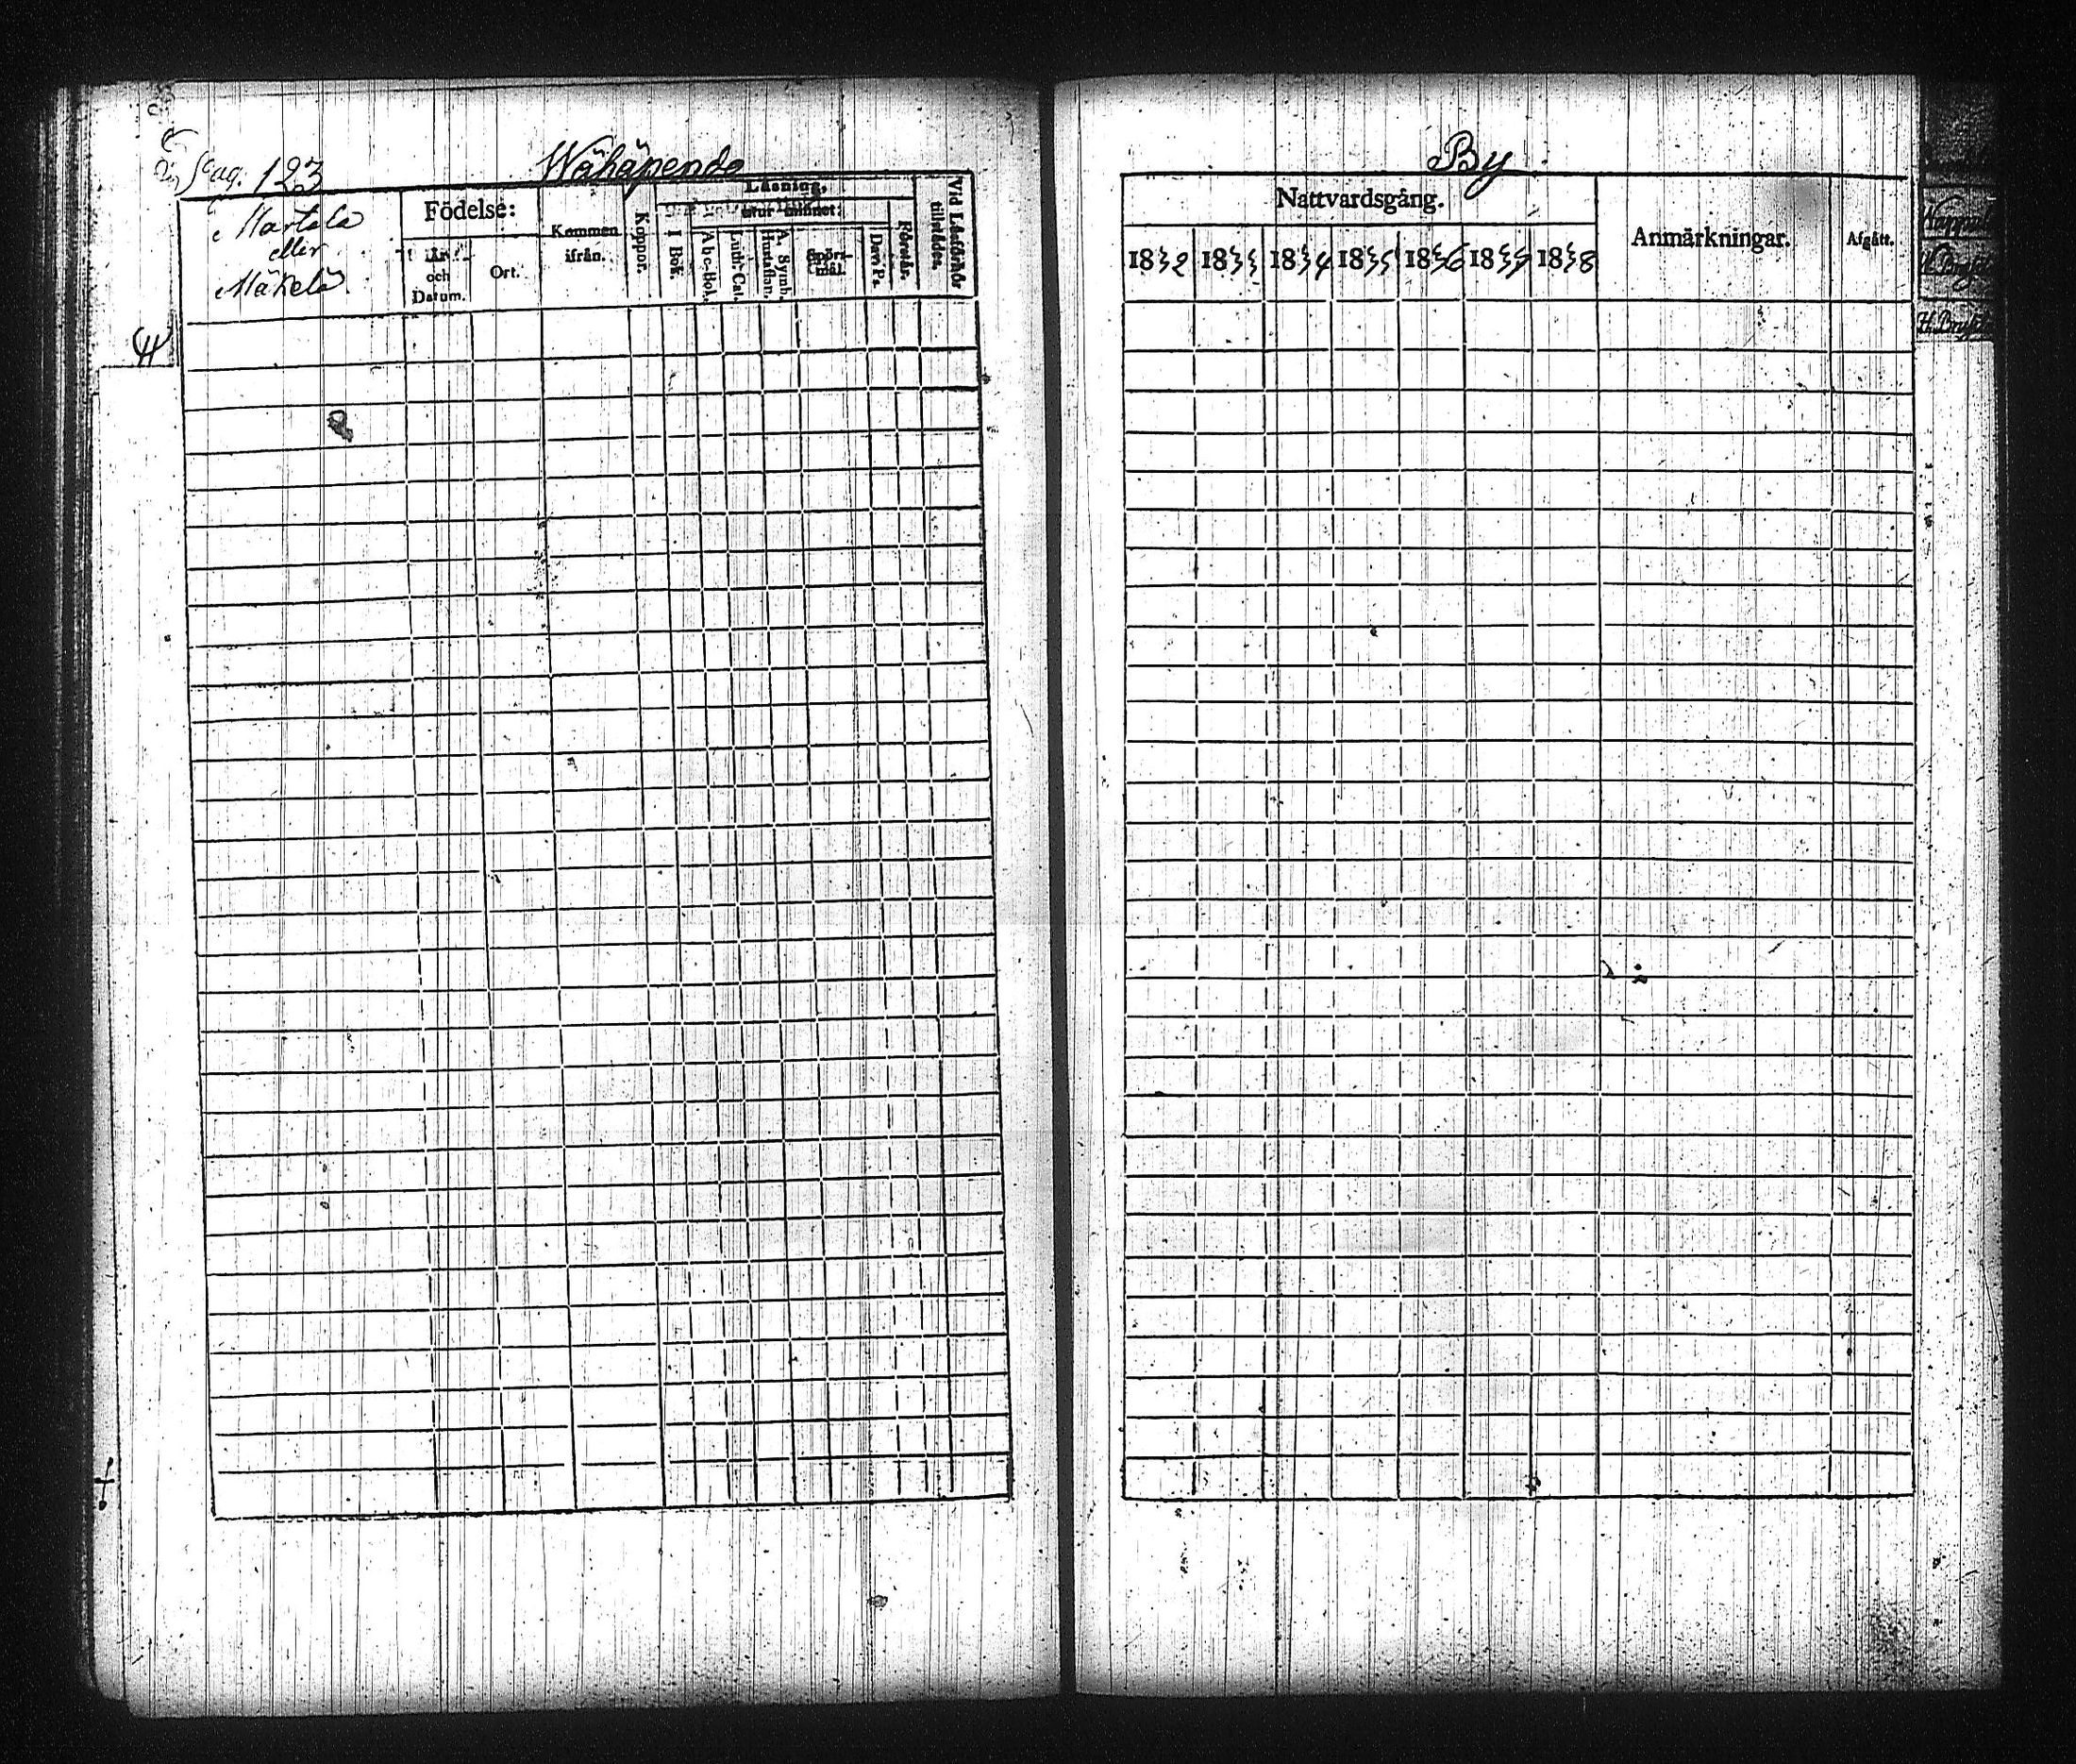 pag. 123
Wähäpendo
By
Martela
eller
Mäkelä.
Födelse:
År
och
Datum.
Ort.
Kommen
ifrån.
Koppor.
Läsning,
utur minnet:
I Bok.
Abc-Bok.
Luth: Cat.
Hustaflan.
A. Symb.
Spörs-
mål.
Dav: Ps.
Förstår.
Vid Läsförhör
tillstädes.
Nattvardsgång.
1832 1833 1834 1835 1836 1837 1838
Anmärkningar.
Afgått.